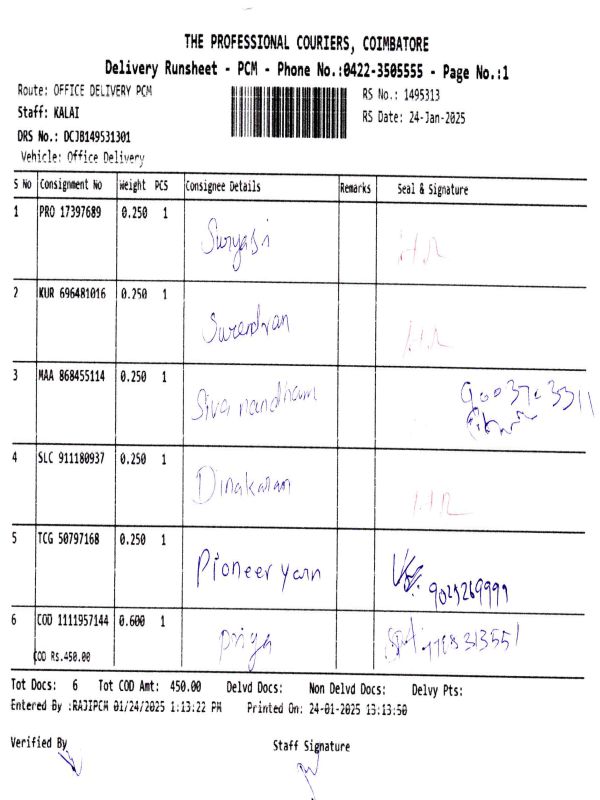 THE PROFESSIONAL COURIERS, COIMBATORE
Delivery Runsheet - PCM - Phone No.:0422-3505555 - Page No.:1
Route: OFFICE DELIVERY PCM
RS No.: 1495313
Staff: KALAI
RS Date: 24-Jan-2025
DRS No.: DCJB149531301
Vehicle: Office Delivery
S No Consignment No Weight PCS Consignee Details Remarks Seal & Signature
1 PRO 17397689 0.250 1
Suryasri H.R
2 KUR 696481016 0.250 1
Surendran H.R
3 MAA 868455114 0.250 1
Sivanandham
4 SLC 911180937 0.250 1
Dinakaran H.R
5 TCG 50797168 0.250 1
Pioneer yarn
6 COD 1111957144 0.600 1
Priya
COD Rs.450.00
Tot Docs: 6 Tot COD Amt: 450.00 Delvd Docs: Non Delvd Docs: Delvy Pts:
Entered By :RAJIPCM 01/24/2025 1:13:22 PM Printed On: 24-01-2025 13:13:50
Verified By Staff Signature